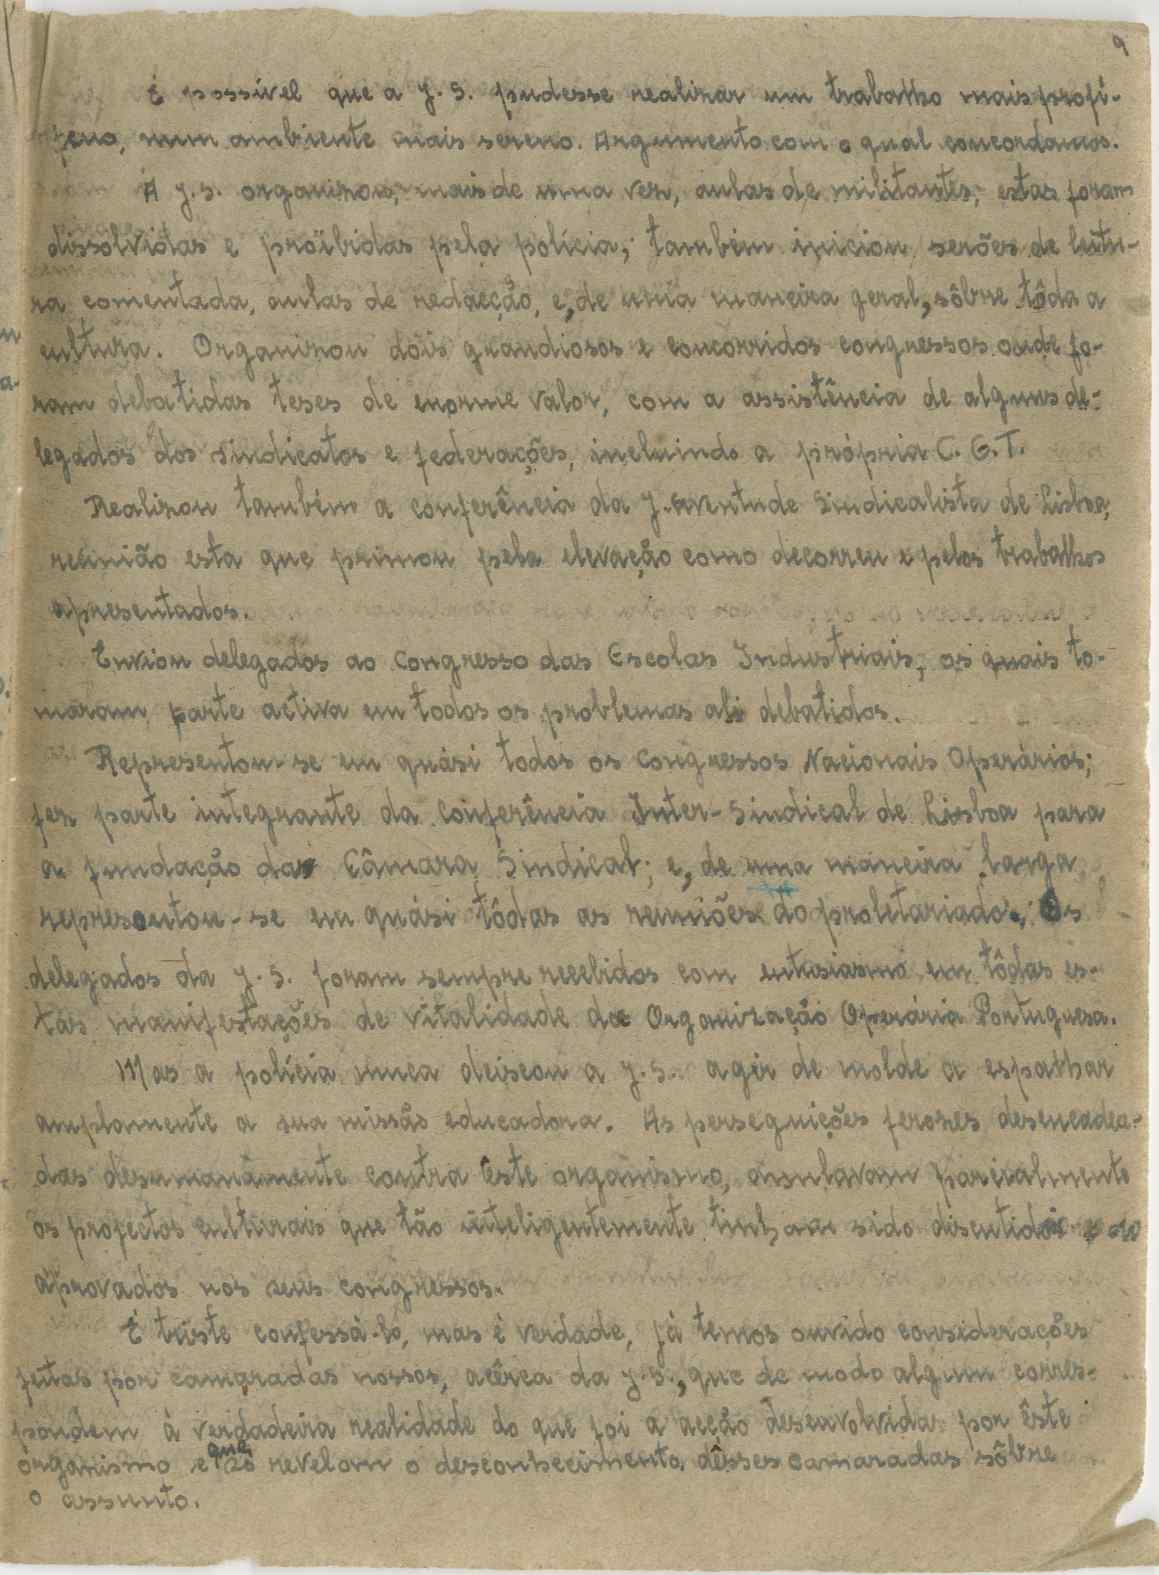 9
É possível que a J. S. pudesse realizar um trabalho mais profí-
feuo, num ambiente mais sereno. Argumento com o qual concordamos.
A J. S. organizou, mais de uma vez, aulas de militantes, estas foram
dissolvidas e proïbidas pela polícia; também iniciou serões de leitu-
ra comentada, aulas de redacção, e, de uma maneira geral, sôbre tôda a
cultura. Organizou dois grandiosos e concorridos congressos onde fo-
ram debatidas teses de enorme valor, com a assistência de alguns de-
legados dos sindicatos e federações, incluindo a própria C. G. T.
Realizou também a conferência da Juventude Sindicalista de Lisboa,
reünião esta que primou pela elevação como decorreu e pelos trabalhos
apresentados.
Enviou delegados ao Congresso das Escolas Industriais, os quais to-
maram parte activa em todos os problemas ali debatidos.
Representou-se em quási todos os Congressos Nacionais Operários;
fez parte integrante da Conferência Inter-Sindical de Lisboa para
a fundação da Câmara Sindical; e, de uma maneira larga
representou-se em quási tôdas as reüniões do proletariado. Os
delegados da J. S. foram sempre recebidos com entusiasmo em tôdas es-
tas manifestações de vitalidade da Organização Operária Portuguesa.
Mas a polícia nunca deixou a J. S. agir de molde a espalhar
amplamente a sua missão educadora. As perseguições ferozes desencadea-
das desumanamente contra êste organismo, anulavam parcialmente
os projectos culturais que tão inteligentemente tinham sido discutidos e
aprovados nos seus congressos.
É triste confessá-lo, mas é verdade, já temos ouvido considerações
feitas por camaradas nossos, acêrca da J. S., que de modo algum corres-
pondem à verdadeira realidade do que foi a acção desenvolvida por êste
organismo e que só revelam o desconhecimento dêsses camaradas sôbre
o assunto.